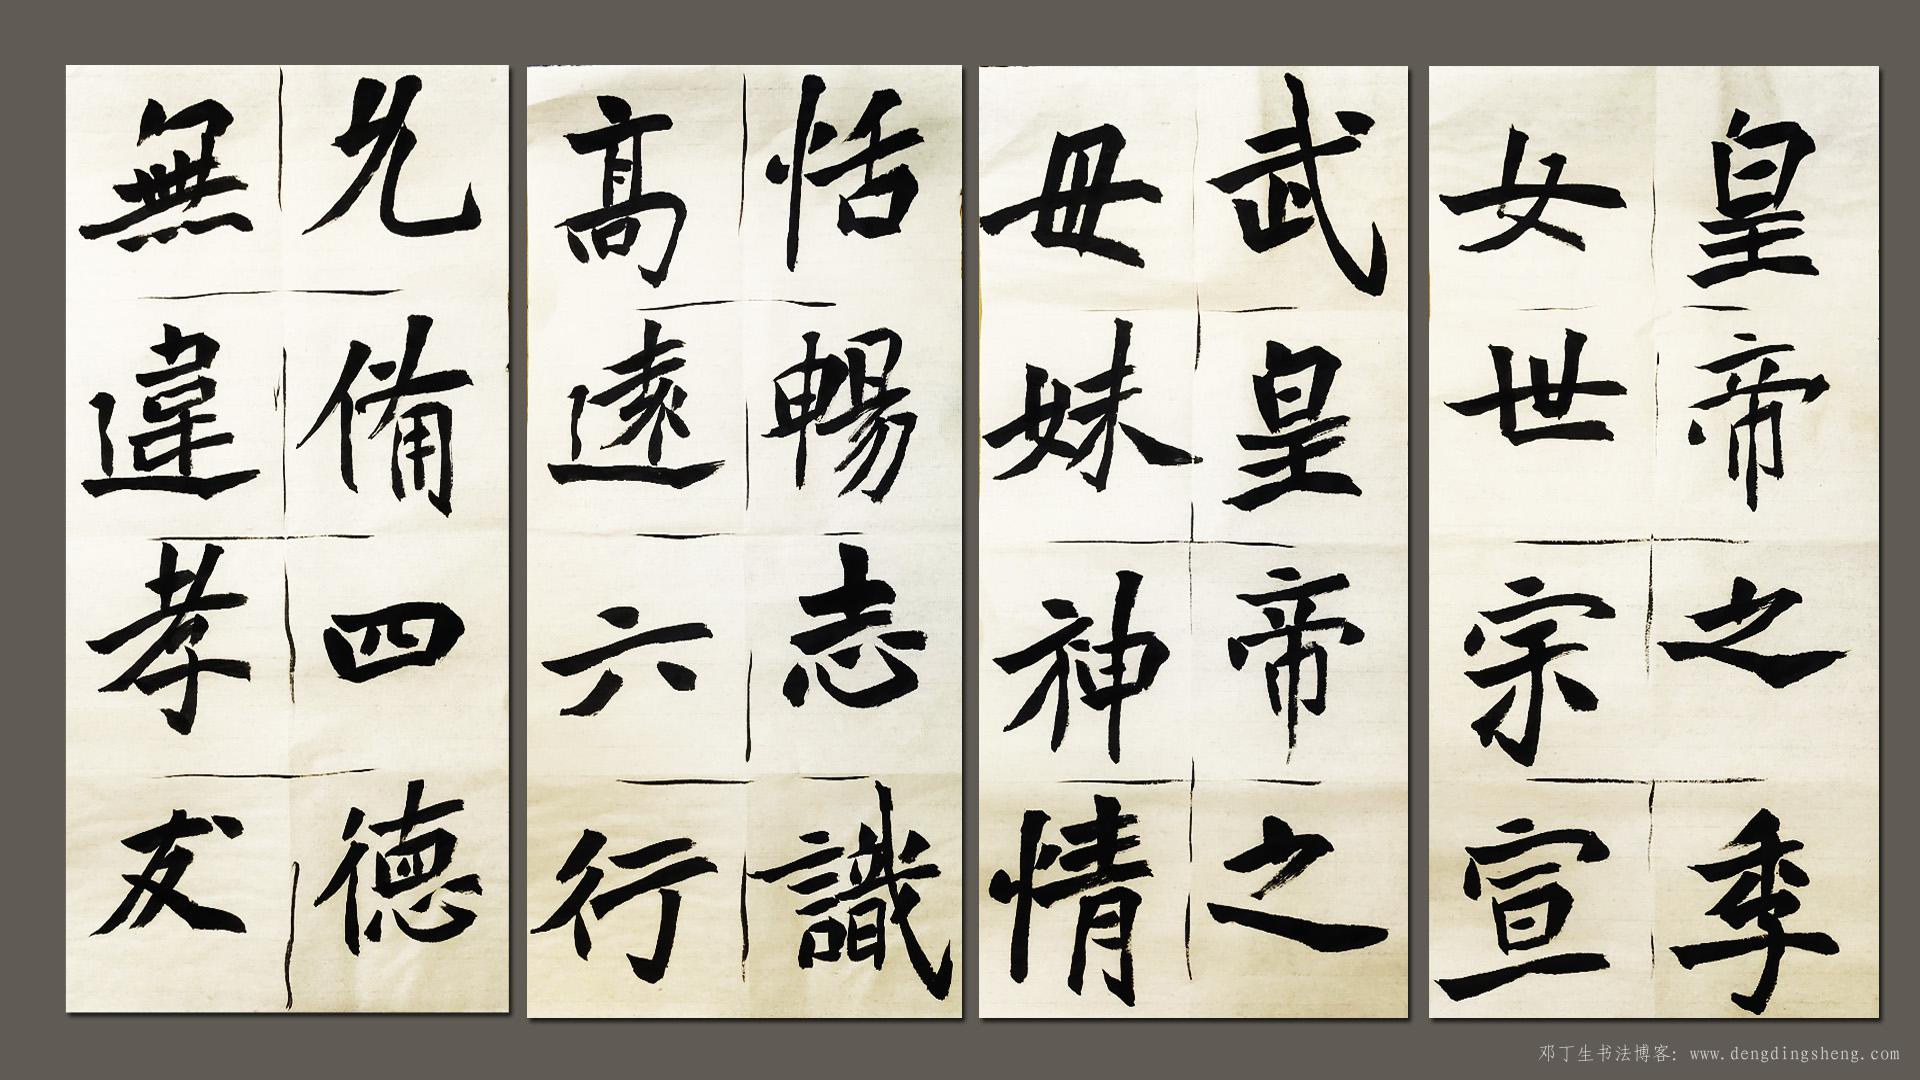 皇帝之季
女世宗宣
武皇帝之
毌妹神情
恬暢志識
高遠六行
允備四德
無違孝友
邓丁生书法博客: www.dengdingsheng.com